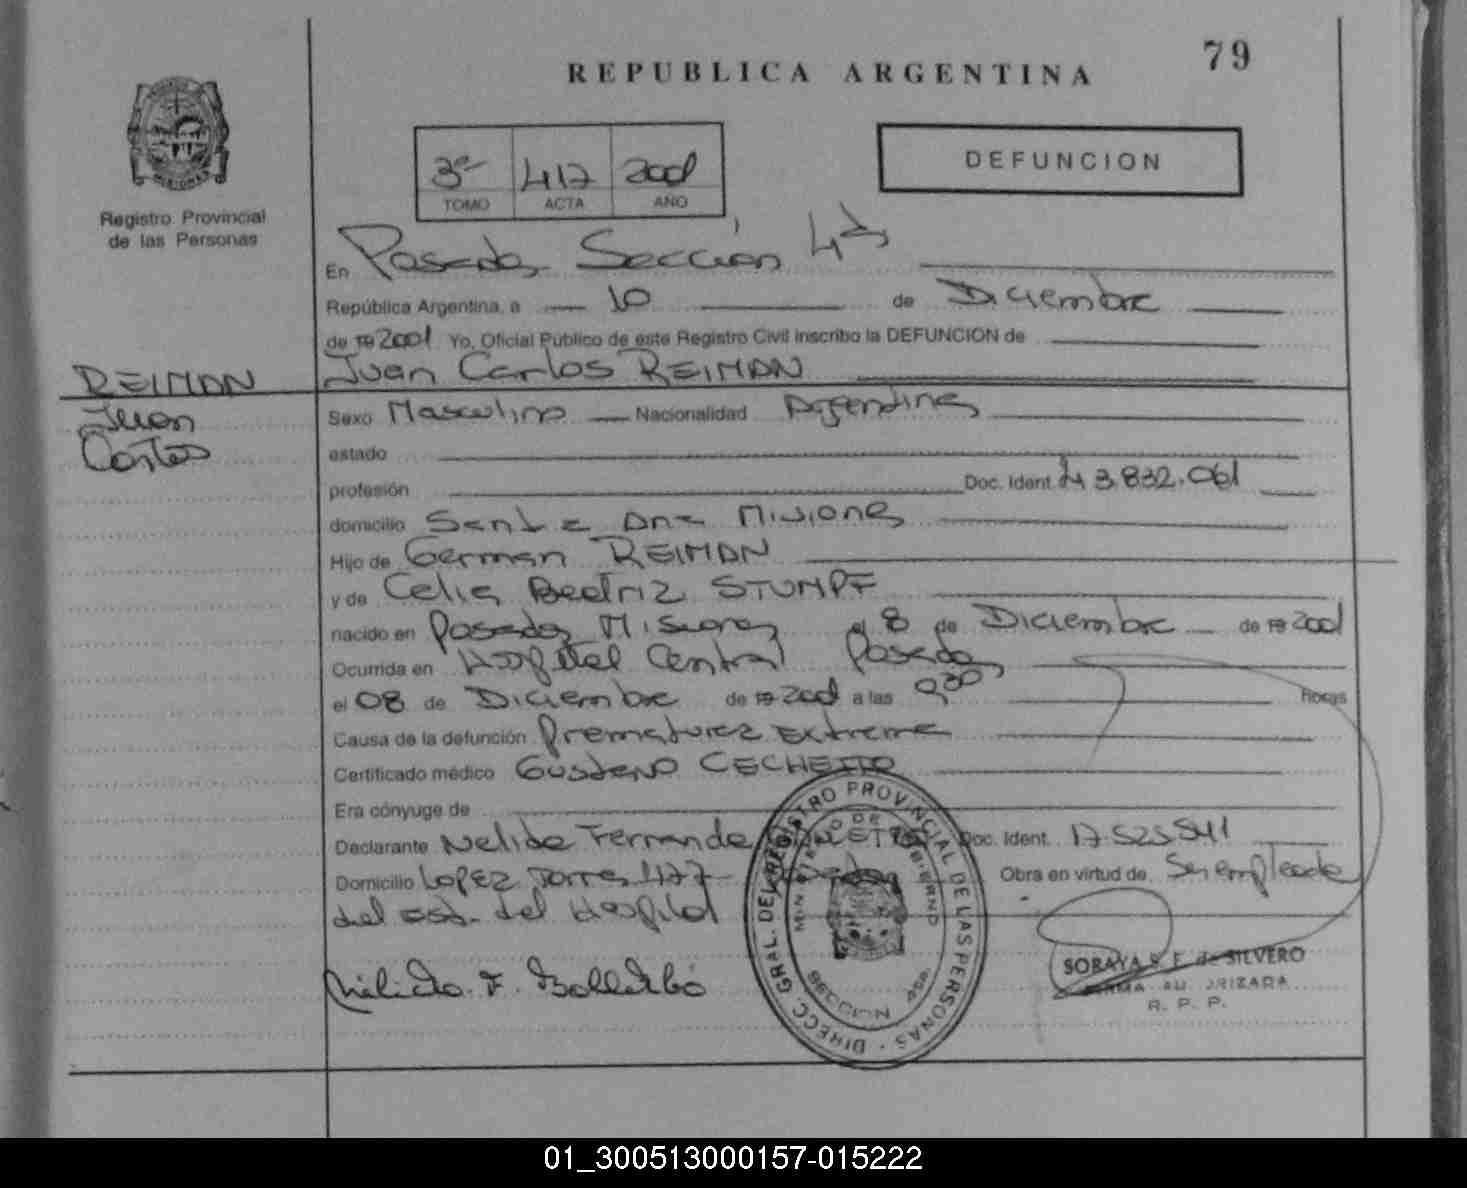 79
REPUBLICA ARGENTINA
3º 417 2001
TOMO ACTA AÑO
DEFUNCION
MISIONES
Registro Provincial
de las Personas
En Posadas Sección 4ta
República Argentina, a 10 de Diciembre
de 19 2001 Yo, Oficial Público de este Registro Civil inscribo la DEFUNCION de
REIMAN
Juan Carlos REIMAN
Juan
Carlos
Sexo Masculino Nacionalidad Argentina
estado
profesión Doc. Ident. 43.832.061
domicilio Santa Ana Misiones
Hijo de German REIMAN
y de Celia Beatriz STUMPF
nacido en Posadas Misiones el 8 de Diciembre de 19 2001
Ocurrida en Hospital Central Posadas
el 08 de Diciembre de 19 2001 a las 9,30 Horas
Causa de la defunción Prematurez Extrema
Certificado médico Gustavo CECHETTO
Era cónyuge de
Declarante Nelida Fernanda Doc. Ident. 17.525.541
Domicilio Lopez Torres 477 Posadas Obra en virtud de Ser empleada
del Est. del Hospital
DIRECC. GRAL. DEL REGISTRO PROVINCIAL DE LAS PERSONAS
MINISTERIO DE GOBIERNO
SORAYA S. F. de SILVERO
FIRMA AUTORIZADA
R. P. P.
01_300513000157-015222